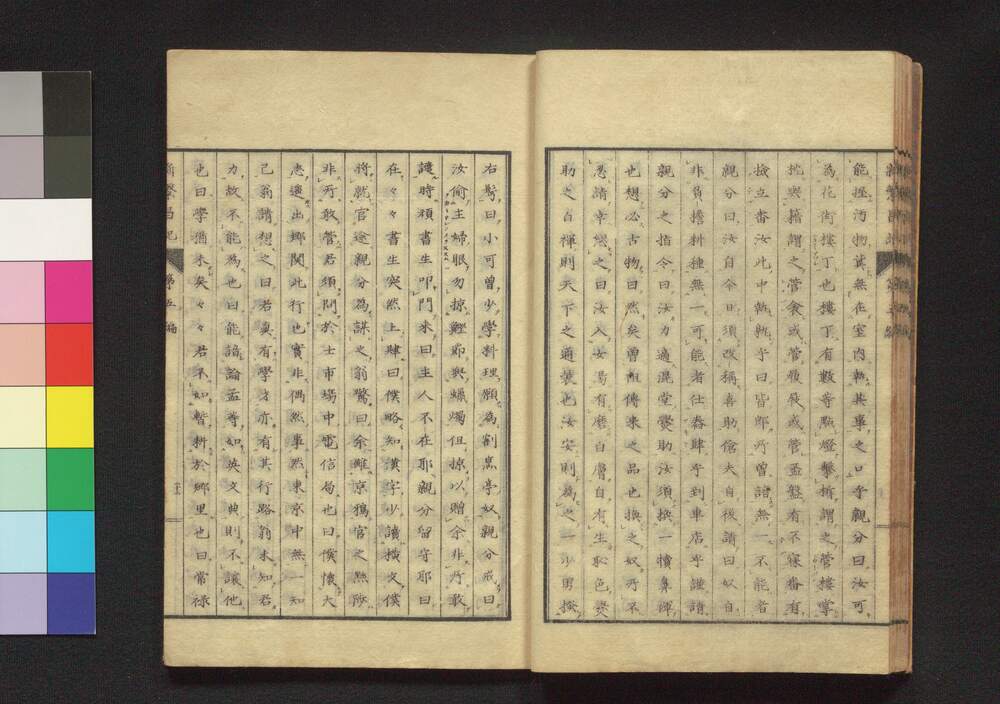 能挫汚物糞無在室内執其事之日乎親分曰汝可
為花街樓丁也樓丁有數等點燈撃柝謂之管樓掌
挑與籍謂之管衾或管履展或管盃盤有不寐番有
撿立番汝此中執執乎曰皆郎所曾諳無一不能者
親分曰汝自今日須改稱喜助傖夫自後請曰奴自
非負擔耕種無一可能者仕舂肆乎到車店乎謹請
親分之指令曰汝力適混堂爨助汝須換一犢鼻褌
也想必古物曰然矣曽祖傳来之品也換之奴所不
忍請幸恕之曰汝入女湯有磨自膚自有生恥色爨
助之白褌則天下之通裝也汝安則為之一少男掠
右髩曰小可曽少學料理願為割烹亭奴親分戒曰
汝偷主婦眼勿掠鰹節與蠟燭但掠以贈余非所敢
譴時頑書生叩門来曰主人不在耶親分留守耶曰
在々々書生突然上肆曰僕略知漢字少讀横文僕
將就官途親分為謀之翁驚曰余雖京鴉官之黜陟
非所敢管君須問於士市場中電信局也曰僕懷大
志遠出郷関此行也實非偶然畢然東京中無一知
己翁請想之曰若真有學才亦有其行路翁未知君
力故不能為也曰能諳論孟等如英文典則不讓他
也曰學猶未矣々々若不如暫耕於郷里也曰常禄
新繁昌記
第五編